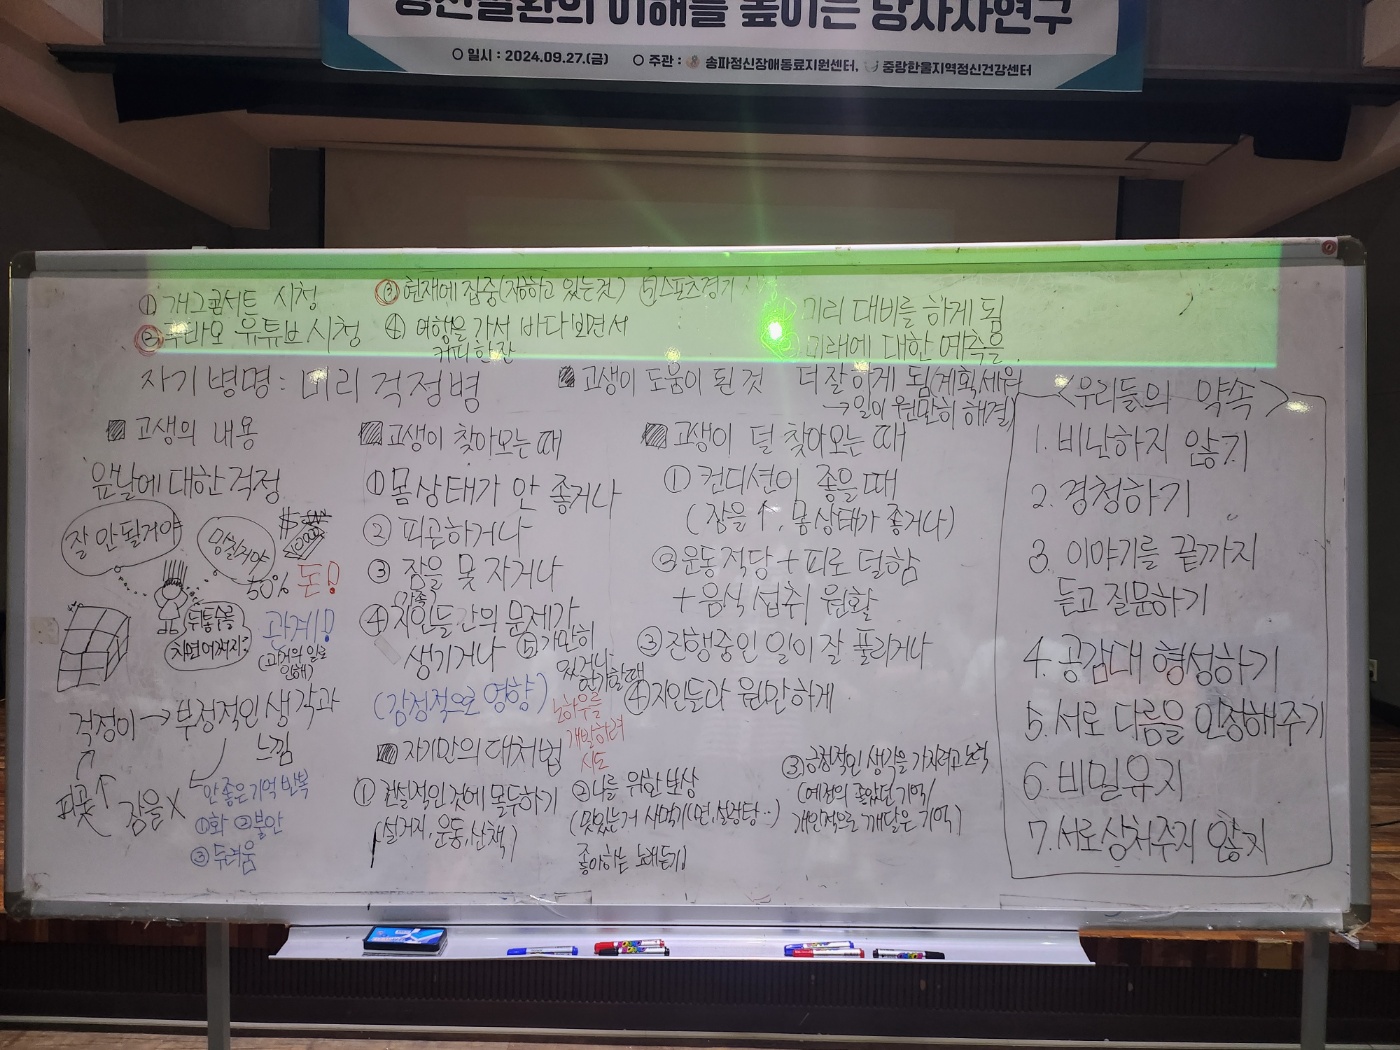 정신질환의 이해를 높이는 당사자연구
일시 : 2024.09.27.(금)
주관 : 송파정신장애동료지원센터, 중랑한울지역정신건강센터
① 개그콘서트 시청
② 유튜브 시청
③ 현재에 집중(지금하고 있는것)
④ 여행을 가서 바다보면서
커피한잔
⑤ 스포츠경기
① 미리 대비를 하게 됨
② 미래에 대한 예측을
더 잘하게 됨(계획세워
→ 일이 원만히 해결)
자기병명 : 미리 걱정병
고생이 도움이 된 것
고생의 내용
앞날에 대한 걱정
잘 안될거야
망칠거야
$
50% 돈!
관계!
(과거의 일로
인해)
뒤통수를
치면 어쩌지?
걱정이 → 부정적인 생각과
느낌
피곤↑ 잠을 X
안좋은 기억 반복
①화 ②불안
③ 두려움
고생이 찾아오는 때
① 몸상태가 안 좋거나
② 피곤하거나
③ 잠을 못 자거나
가족
④ 지인들간의 문제가
생기거나
⑤ 가만히
있거나
한가할때
(감정적으로 영향)
노하우를
개발하려
시도
자기만의 대처법
① 현실적인 것에 몰두하기
(설거지, 운동, 산책)
② 나를 위한 보상
(맛있는거 사먹기(면, 설렁탕..)
좋아하는 노래듣기)
③ 긍정적인 생각을 가지려고 노력
(예전의 좋았던 기억/
개인적으로 깨달은 기억)
고생이 덜 찾아오는 때
① 컨디션이 좋을때
(잠을↑, 몸상태가 좋거나)
② 운동 적당 + 피로 덜함
+ 음식 섭취 원활
③ 진행중인 일이 잘 풀리거나
④ 지인들과 원만하게
<우리들의 약속>
1. 비난하지 않기
2. 경청하기
3. 이야기를 끝까지
듣고 질문하기
4. 공감대 형성하기
5. 서로 다름을 인정해주기
6. 비밀유지
7. 서로상처주지 않기